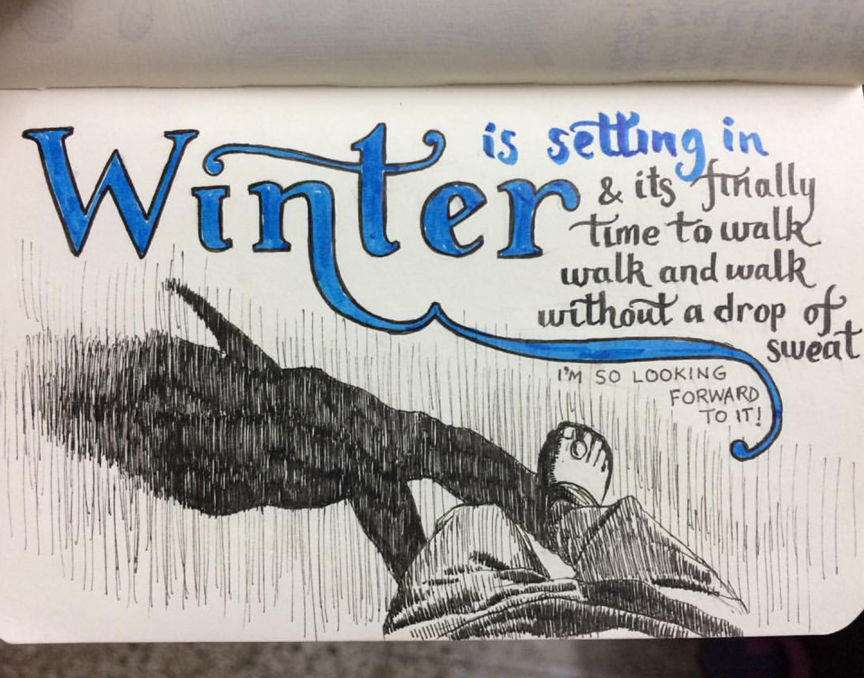 Winter
is setting in
& its finally
time to walk
walk and walk
without a drop of
sweat
I'M SO LOOKING
FORWARD
TO IT!